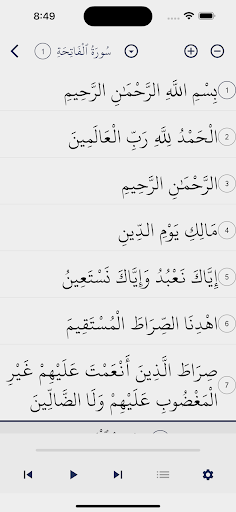 8:49
سُورَةُ ٱلْفَاتِحَةِ 1
بِسْمِ اللَّهِ الرَّحْمَٰنِ الرَّحِيمِ 1
الْحَمْدُ لِلَّهِ رَبِّ الْعَالَمِينَ 2
الرَّحْمَٰنِ الرَّحِيمِ 3
مَالِكِ يَوْمِ الدِّينِ 4
إِيَّاكَ نَعْبُدُ وَإِيَّاكَ نَسْتَعِينُ 5
اهْدِنَا الصِّرَاطَ الْمُسْتَقِيمَ 6
صِرَاطَ الَّذِينَ أَنْعَمْتَ عَلَيْهِمْ غَيْرِ 7
الْمَغْضُوبِ عَلَيْهِمْ وَلَا الضَّالِّينَ